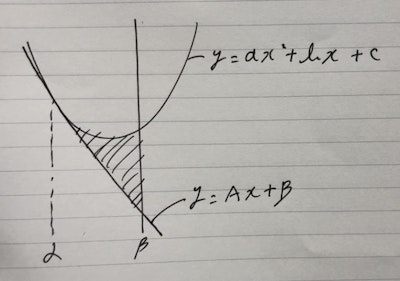 y=ax²+bx+c
y=Ax+B
α
β